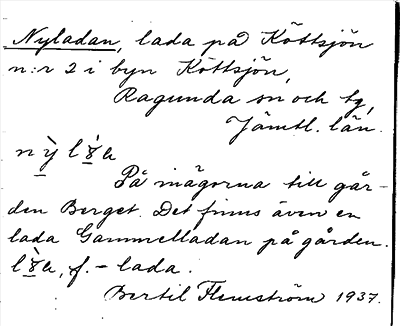 Nyladan, lada på Köttsjön
n:r 2 i byn Köttsjön,
Ragunda sn och tg,
Jämtl. län.
På mägorna till går-
den Berget. Det finns även en
lada Gammelladan på gården.
f. - lada.
Bertil Flemström 1937.